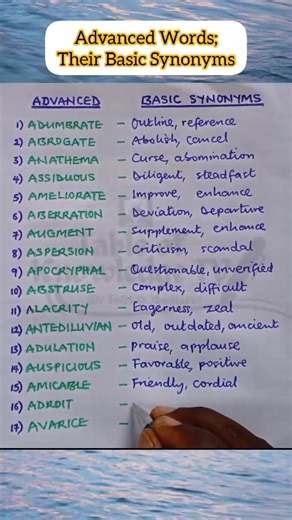 Advanced Words;
Their Basic Synonyms
ADVANCED BASIC SYNONYMS
1) ADUMBRATE – Outline, reference
2) ABROGATE – Abolish, cancel
3) ANATHEMA – Curse, abomination
4) ASSIDUOUS – Diligent, steadfast
5) AMELIORATE – Improve, enhance
6) ABERRATION – Deviation, Departure
7) AUGMENT – Supplement, enhance
8) ASPERSION – Criticism, scandal
9) APOCRYPHAL – Questionable, unverified
10) ABSTRUSE – Complex, difficult
11) ALACRITY – Eagerness, zeal
12) ANTEDILUVIAN – Old, outdated, ancient
13) ADULATION – praise, applause
14) AUSPICIOUS – Favorable, positive
15) AMICABLE – Friendly, cordial
16) ADROIT –
17) AVARICE –